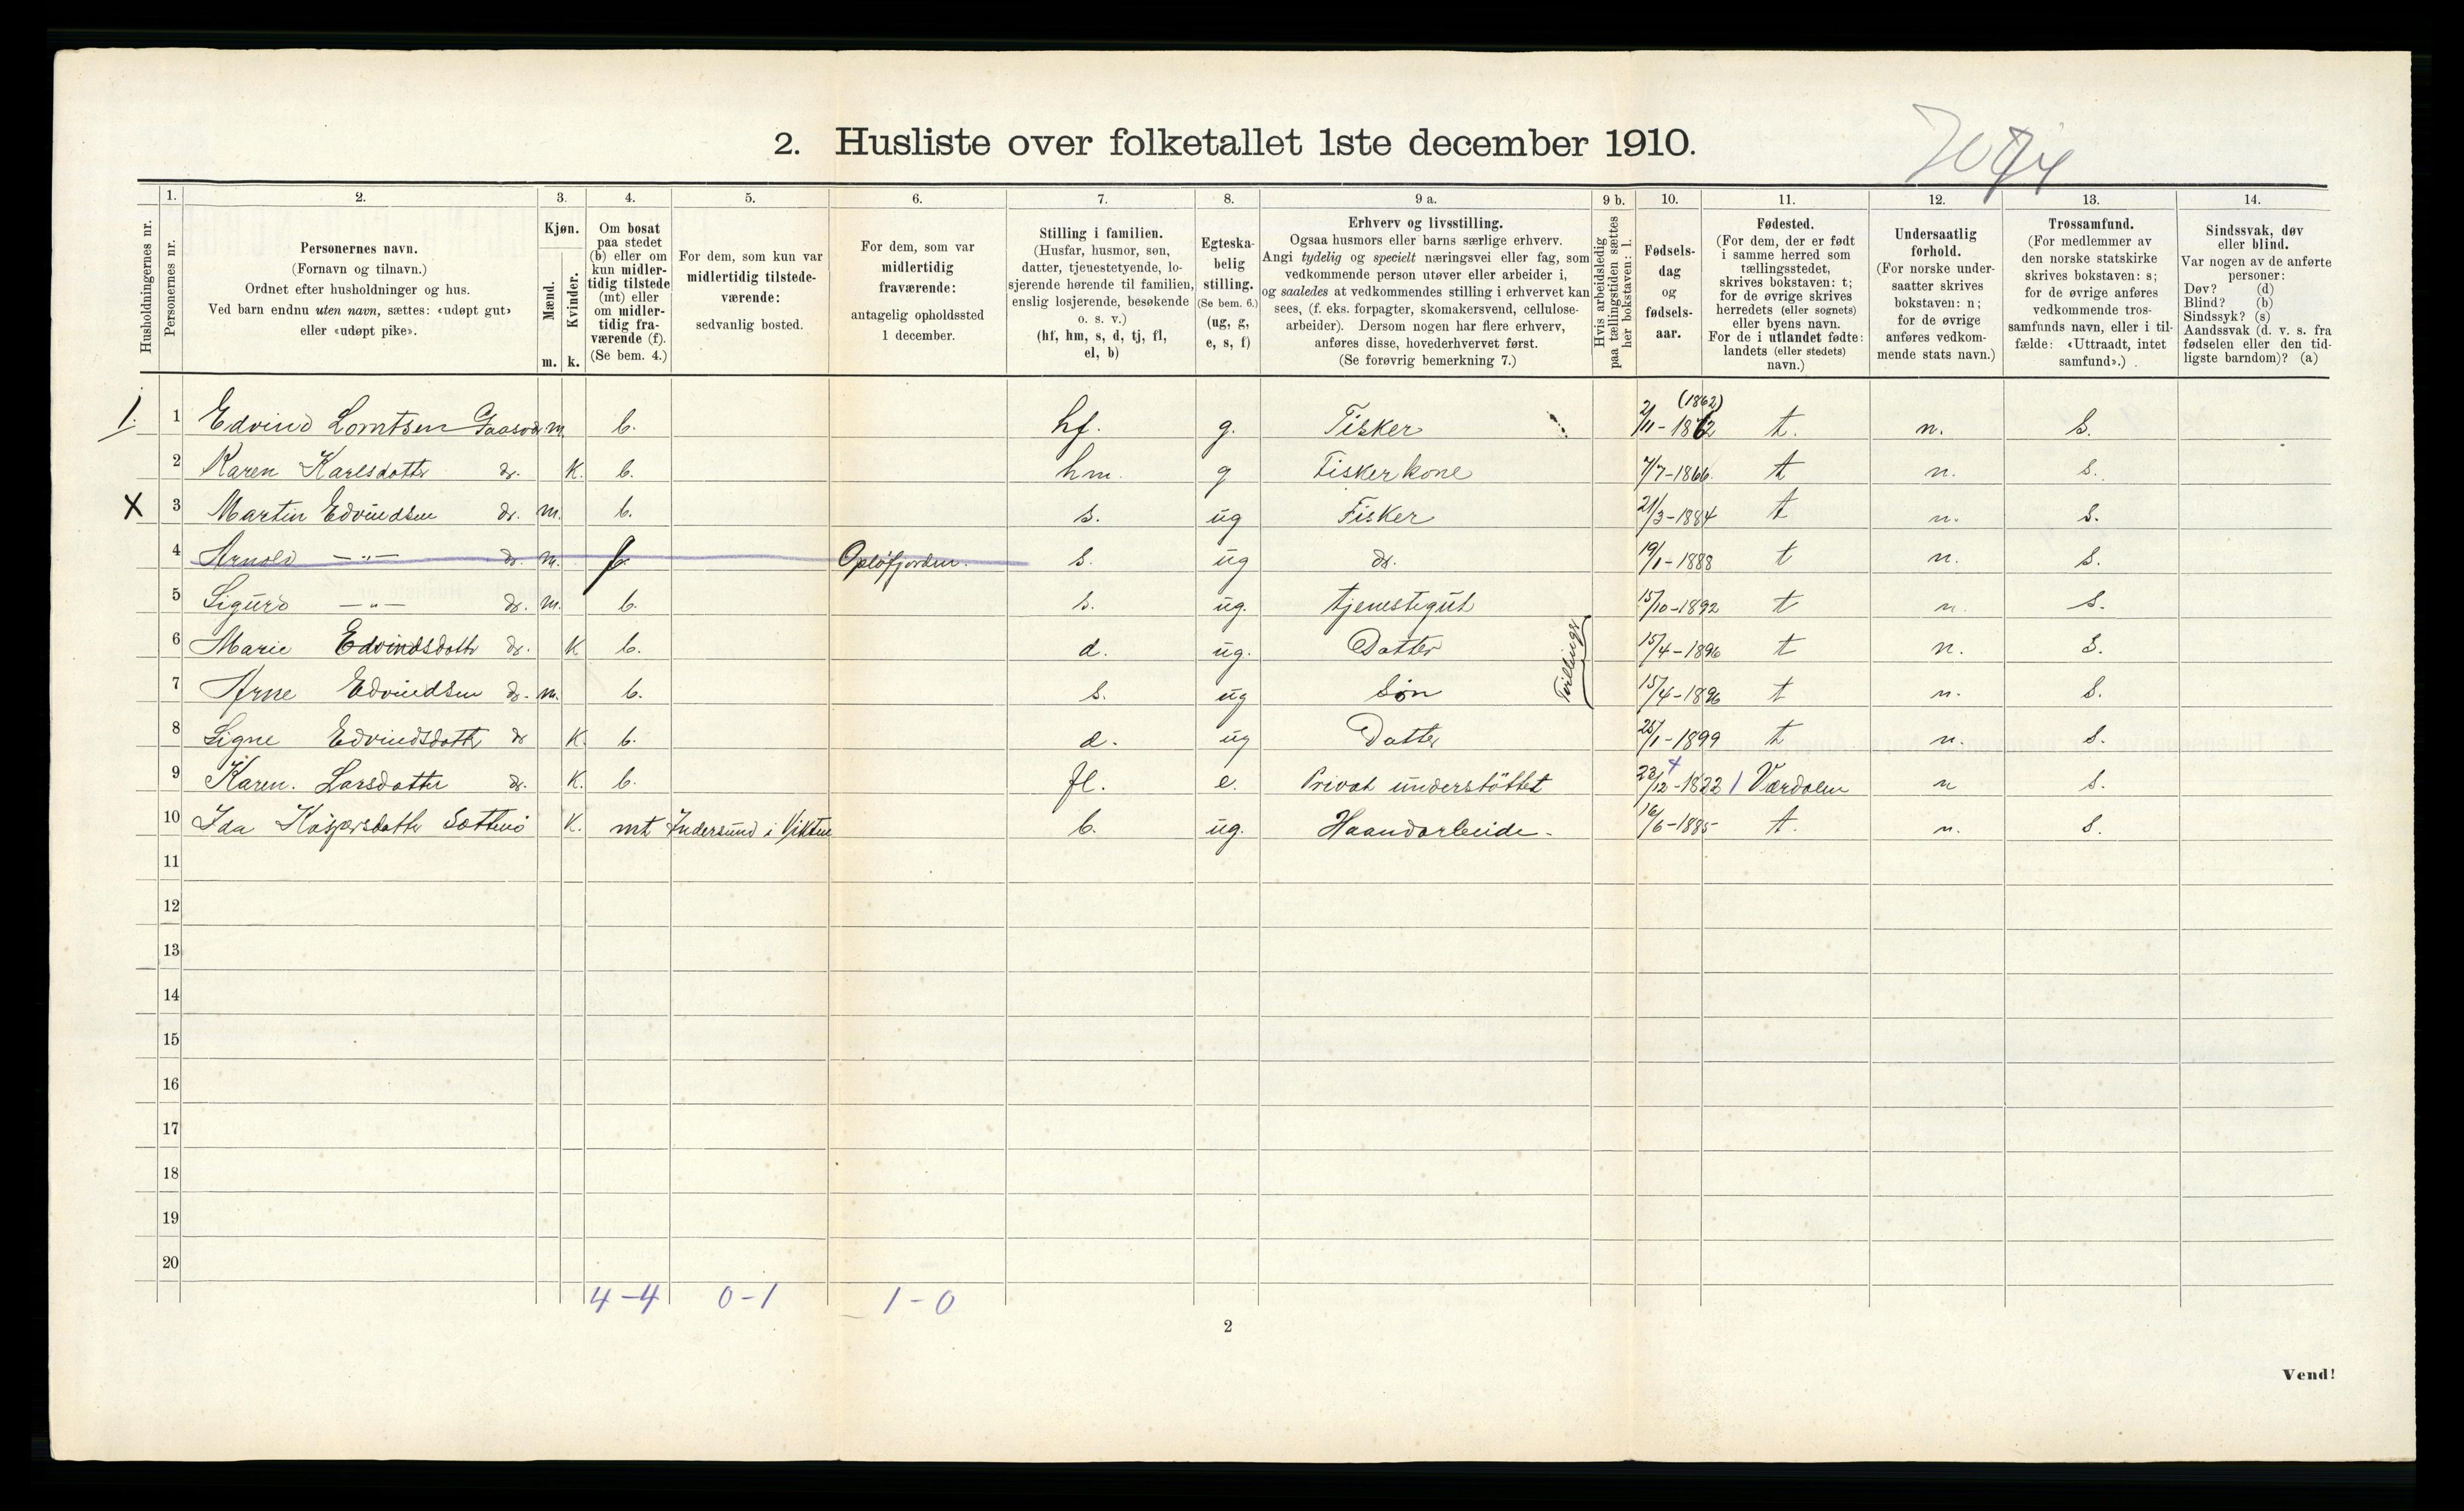 2. Husliste over folketallet 1ste december 1910.
Husholdningernes nr.
1. Personernes nr.
2. Personernes navn.
(Fornavn og tilnavn.)
Ordnet efter husholdninger og hus.
Ved barn endnu uten navn, sættes: «udøpt gut»
eller «udøpt pike».
3. Kjøn.
Mænd. m.
Kvinder. k.
4. Om bosat
paa stedet
(b) eller om
kun midler-
tidig tilstede
(mt) eller
om midler-
tidig fra-
værende (f).
(Se bem. 4.)
5. For dem, som kun var
midlertidig tilstede-
værende:
sedvanlig bosted.
6. For dem, som var
midlertidig
fraværende:
antagelig opholdssted
1 december.
7. Stilling i familien.
(Husfar, husmor, søn,
datter, tjenestetyende, lo-
sjerende hørende til familien,
enslig losjerende, besøkende
o. s. v.)
(hf, hm, s, d, tj, fl,
el, b)
8. Egteska-
belig
stilling.
(Se bem. 6.)
(ug, g,
e, s, f)
9 a. Erhverv og livsstilling.
Ogsaa husmors eller barns særlige erhverv.
Angi tydelig og specielt næringsvei eller fag, som
vedkommende person utøver eller arbeider i,
og saaledes at vedkommendes stilling i erhvervet kan
sees, (f. eks. forpagter, skomakersvend, cellulose-
arbeider). Dersom nogen har flere erhverv,
anføres disse, hovederhvervet først.
(Se forøvrig bemerkning 7.)
9 b. Hvis arbeidsledig
paa tællingstiden sættes
her bokstaven: l.
10. Fødsels-
dag
og
fødsels-
aar.
11. Fødested.
(For dem, der er født
i samme herred som
tællingsstedet,
skrives bokstaven: t;
for de øvrige skrives
herredets (eller sognets)
eller byens navn.
For de i utlandet fødte:
landets (eller stedets)
navn.)
12. Undersaatlig
forhold.
(For norske under-
saatter skrives
bokstaven: n;
for de øvrige
anføres vedkom-
mende stats navn.)
13. Trossamfund.
(For medlemmer av
den norske statskirke
skrives bokstaven: s;
for de øvrige anføres
vedkommende tros-
samfunds navn, eller i til-
fælde: «Uttraadt, intet
samfund».)
14. Sindssvak, døv
eller blind.
Var nogen av de anførte
personer:
Døv? (d)
Blind? (b)
Sindssyk? (s)
Aandssvak (d. v. s. fra
fødselen eller den tid-
ligste barndom)? (a)
(1862)
1. 1 Edvind Lorntsen Gaasvær m. b. hf. g. Fisker 2/11-1862 t. n. s.
2 Karen Karlsdatter do. K. b. hm. g Fisker kone 7/7-1866. t n. s.
X 3 Martin Edvindsen do. m. b. s. ug Fisker 21/3-1884 t n. s.
4 Arnold —"— do. m. f Opløfjorden. s. ug do. 19/1-1888 t n. s.
5 Sigurd —"— do. m. b. s. ug. tjenestegut 15/10-1892 t n. s.
6 Marie Edvindsdatter do. K b. d. ug. Datter 15/4-1896 t n. s.
Tvillinger
7 Arne Edvindsen do. m. b. s. ug Søn 15/4-1896 t n. s.
8 Signe Edvindsdatter do K. b. d. ug Datter 25/1-1899 t n. s.
9 Karen. Larsdatter do. K. b. fl. e. Privat understöttet 23/12-1822 Værdalen n s.
10 Ida Kaspersdatter Sætternø K. mt Indersund i Vikten b. ug. Haandarbeide - 16/6-1885 t. n. s.
11
12
13
14
15
16
17
18
19
20
4-4 0-1 1-0
2
Vend!